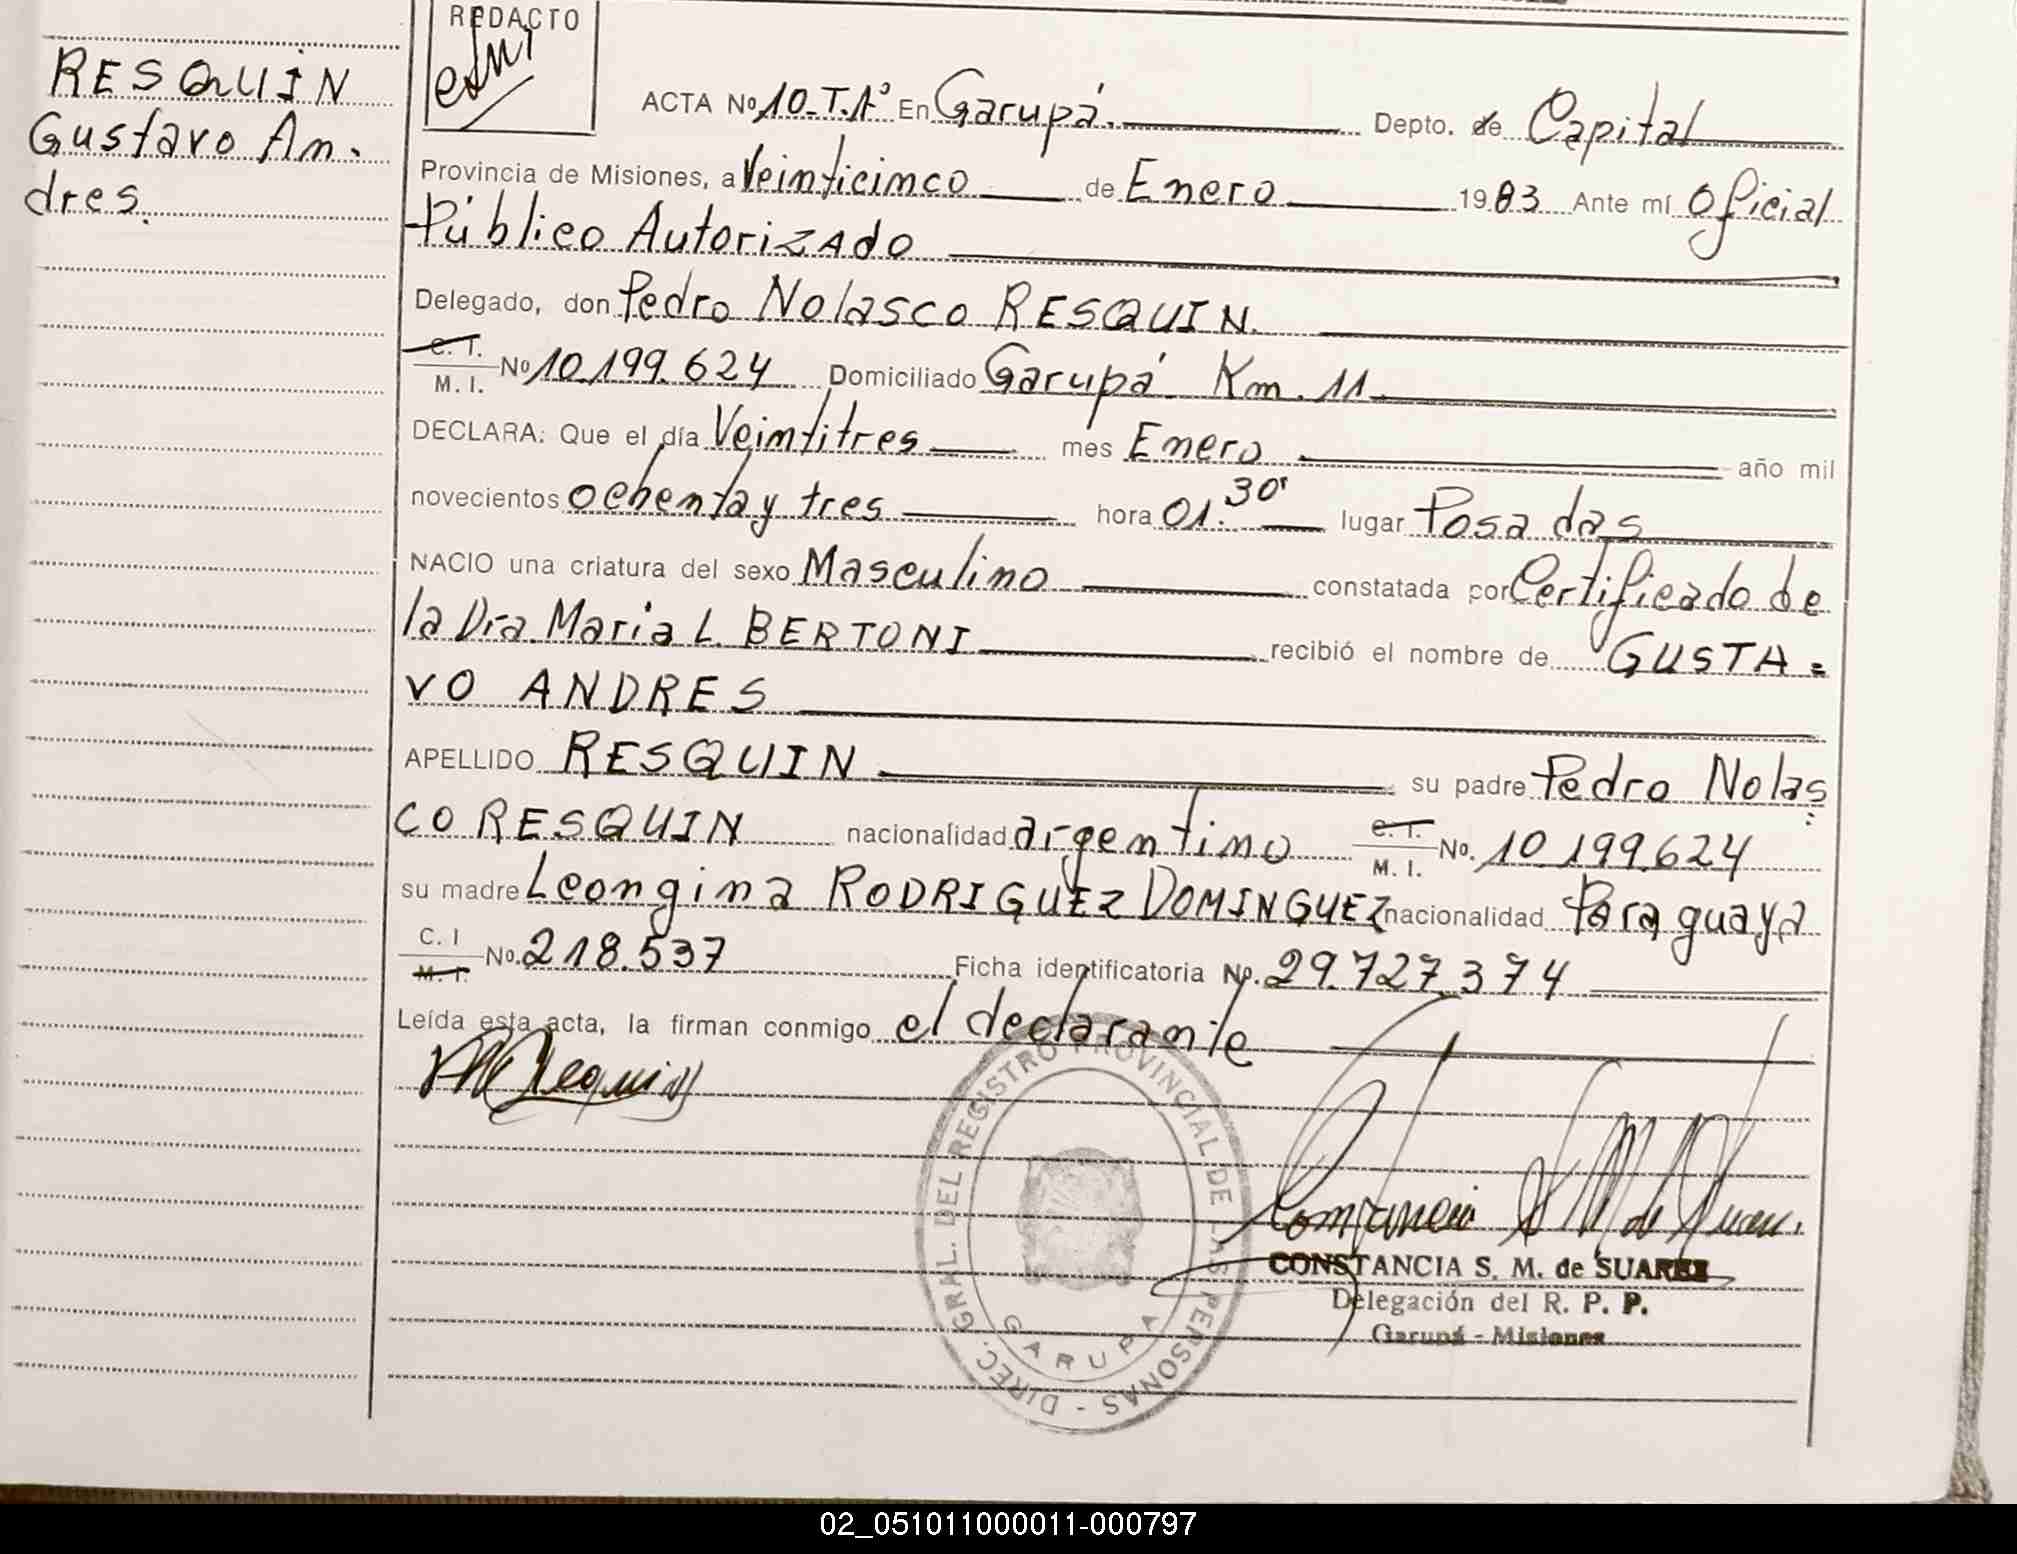 REDACTO
RESQUIN
Gustavo An.
dres.
ACTA Nº 10-T.1º En Garupá. Depto. de Capital
Provincia de Misiones, a Veinticinco de Enero 1983 Ante mí Oficial
Público Autorizado
Delegado, don Pedro Nolasco RESQUIN.
C. I. / M. I. Nº 10.199.624 Domiciliado Garupá Km. 11.
DECLARA: Que el día Veintitres mes Enero año mil
novecientos ochenta y tres hora 01.30' lugar Posadas
NACIO una criatura del sexo Masculino constatada por Certificado de
la Dra. Maria L. BERTONI recibió el nombre de GUSTA=
VO ANDRES
APELLIDO RESQUIN su padre Pedro Nolas
CO RESQUIN nacionalidad argentino C. I. / M. I. Nº. 10.199.624
su madre Leongina RODRIGUEZ DOMINGUEZ nacionalidad Paraguaya
C. I / M. I. Nº. 218.537 Ficha identificatoria Nº. 29.727.374
Leída esta acta, la firman conmigo el declarante
DIREC. GRAL. DEL REGISTRO PROVINCIAL DE LAS PERSONAS -
GARUPA
CONSTANCIA S. M. de SUAREZ
Delegación del R. P. P.
Garupá - Misiones
02_051011000011-000797